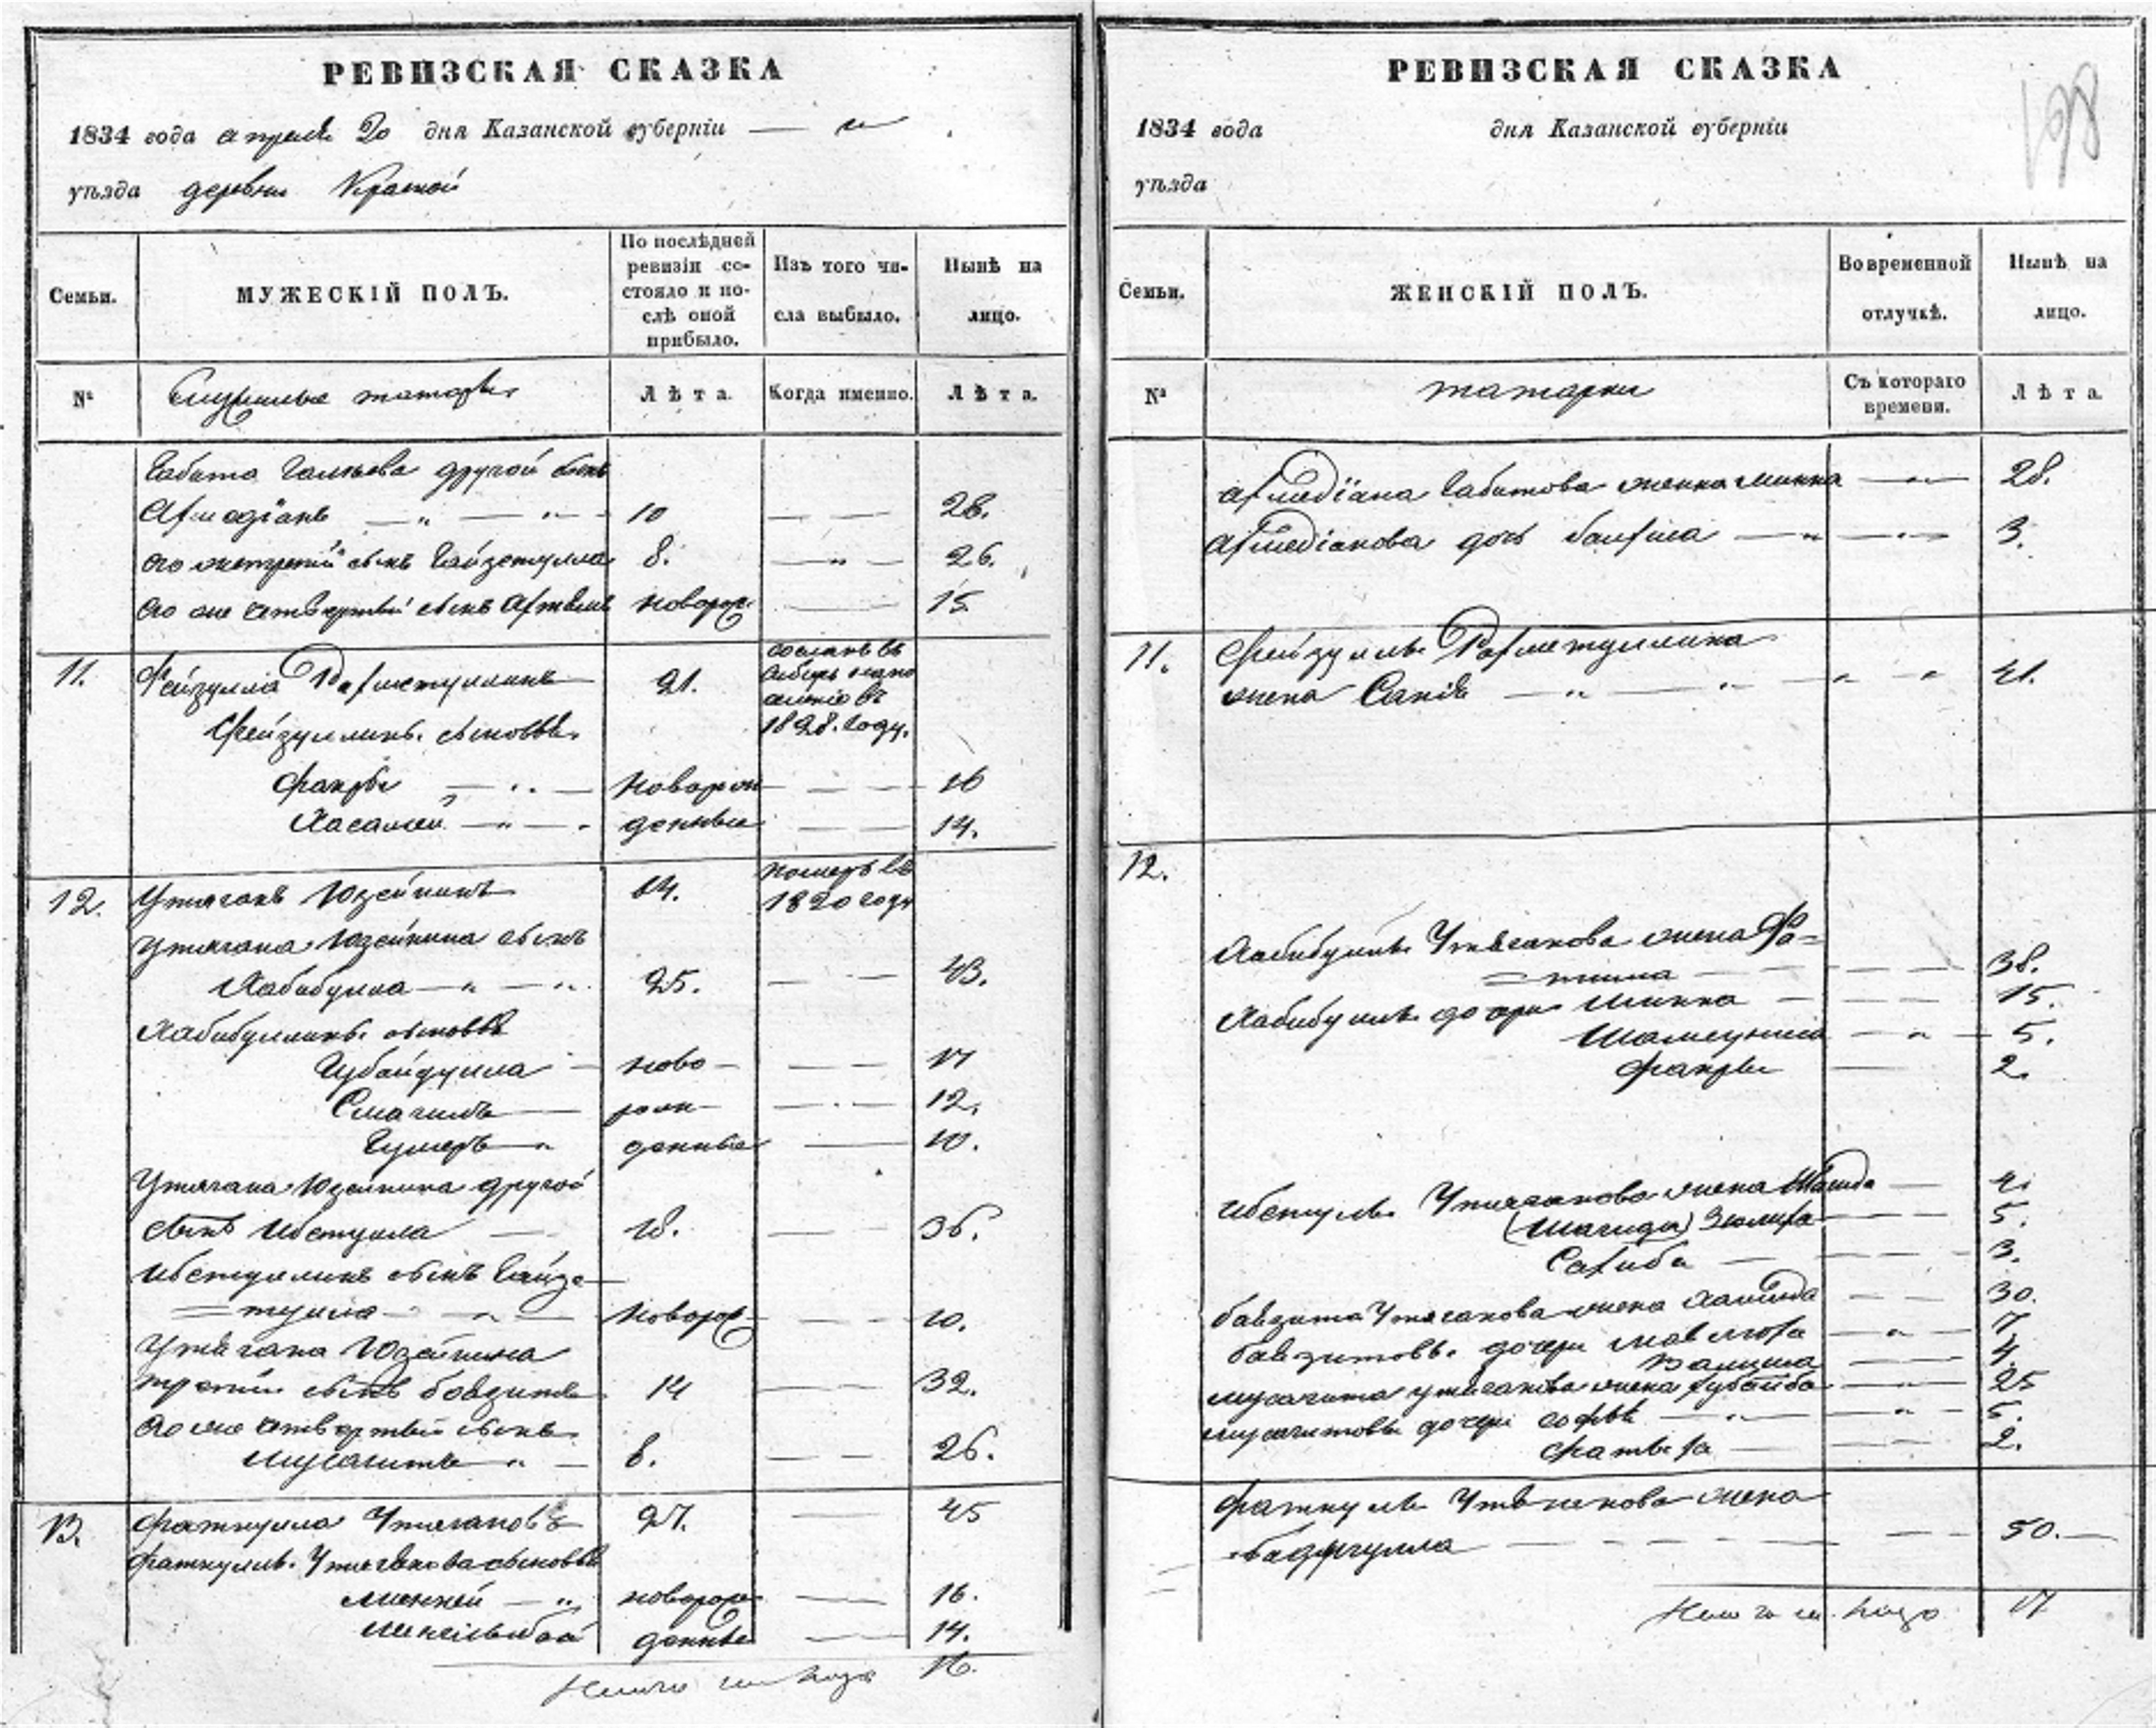 РЕВИЗСКАЯ СКАЗКА
1834 года апреля 20 дня Казанской губерніи
уѣзда деревни
Семьи.
МУЖЕСКІЙ ПОЛЪ.
По послѣдней
ревизіи со-
стояло и по-
слѣ оной
прибыло.
Изъ того чи-
сла выбыло.
Нынѣ на
лицо.
№
Служилые татары
Лѣта.
Когда именно.
Лѣта.
Габита Галеева другой сынъ
Ахмадіанъ 10 28.
его третій сынъ Гайзетулла 8. 26.
его же четвертый сынъ новорож 15
11. Фейзулла Рахметуллинъ 21. сосланъ въ
Сибирь на посе
леніе въ
1828. году.
Фейзуллины сыновья
Фахры новорож 16
Хасаней денные 14.
12. Утяганъ Юзейкинъ 64. померъ въ
1820 году
Утягана Юзейкина сынъ
Хабибулла 25. 43.
Хабибуллины сыновья
Губайдулла ново- 17
Смагилъ рож- 12.
Гумеръ денные 10.
Утягана Юзейкина другой
сынъ Ибетулла 18. 36.
Ибетуллинъ сынъ Гайзе-
тулла новорож 10.
Утягана Юзейкина
третій сынъ Баязитъ 14 32.
его же четвертый сынъ
Мусагитъ 8. 26.
13. Фаткулла Утягановъ 27. 45
Фаткуллы Утяганова сыновья
Минней новорож 16.
денные 14.
Итого на лицо 16.
РЕВИЗСКАЯ СКАЗКА
198
1834 года дня Казанской губерніи
уѣзда
Семьи.
ЖЕНСКІЙ ПОЛЪ.
Во временной
отлучкѣ.
Нынѣ на
лицо.
№
татарки
Съ котораго
времени.
Лѣта.
Ахмедіана Габитова женка Минна 28.
Ахмедіанова дочь 3.
11. Фейзуллы Рахметуллина
жена 41.
12.
Хабибуллы Утяганова жена Фа=
=тима 38.
Хабибуллы дочери Минна 15.
5.
Фахры 2.
Ибетуллы Утяганова жена
(Шагида) Зюлиха 5.
Сахиба 3.
Баязита Утяганова жена Хамида 30.
Баязитовы дочери 7
Валима 4
Мусагита Утяганова жена Хубайба 25
Мусагитовы дочери Софья 5.
2.
Фаткуллы Утяганова жена
50.
Итого на лицо 17